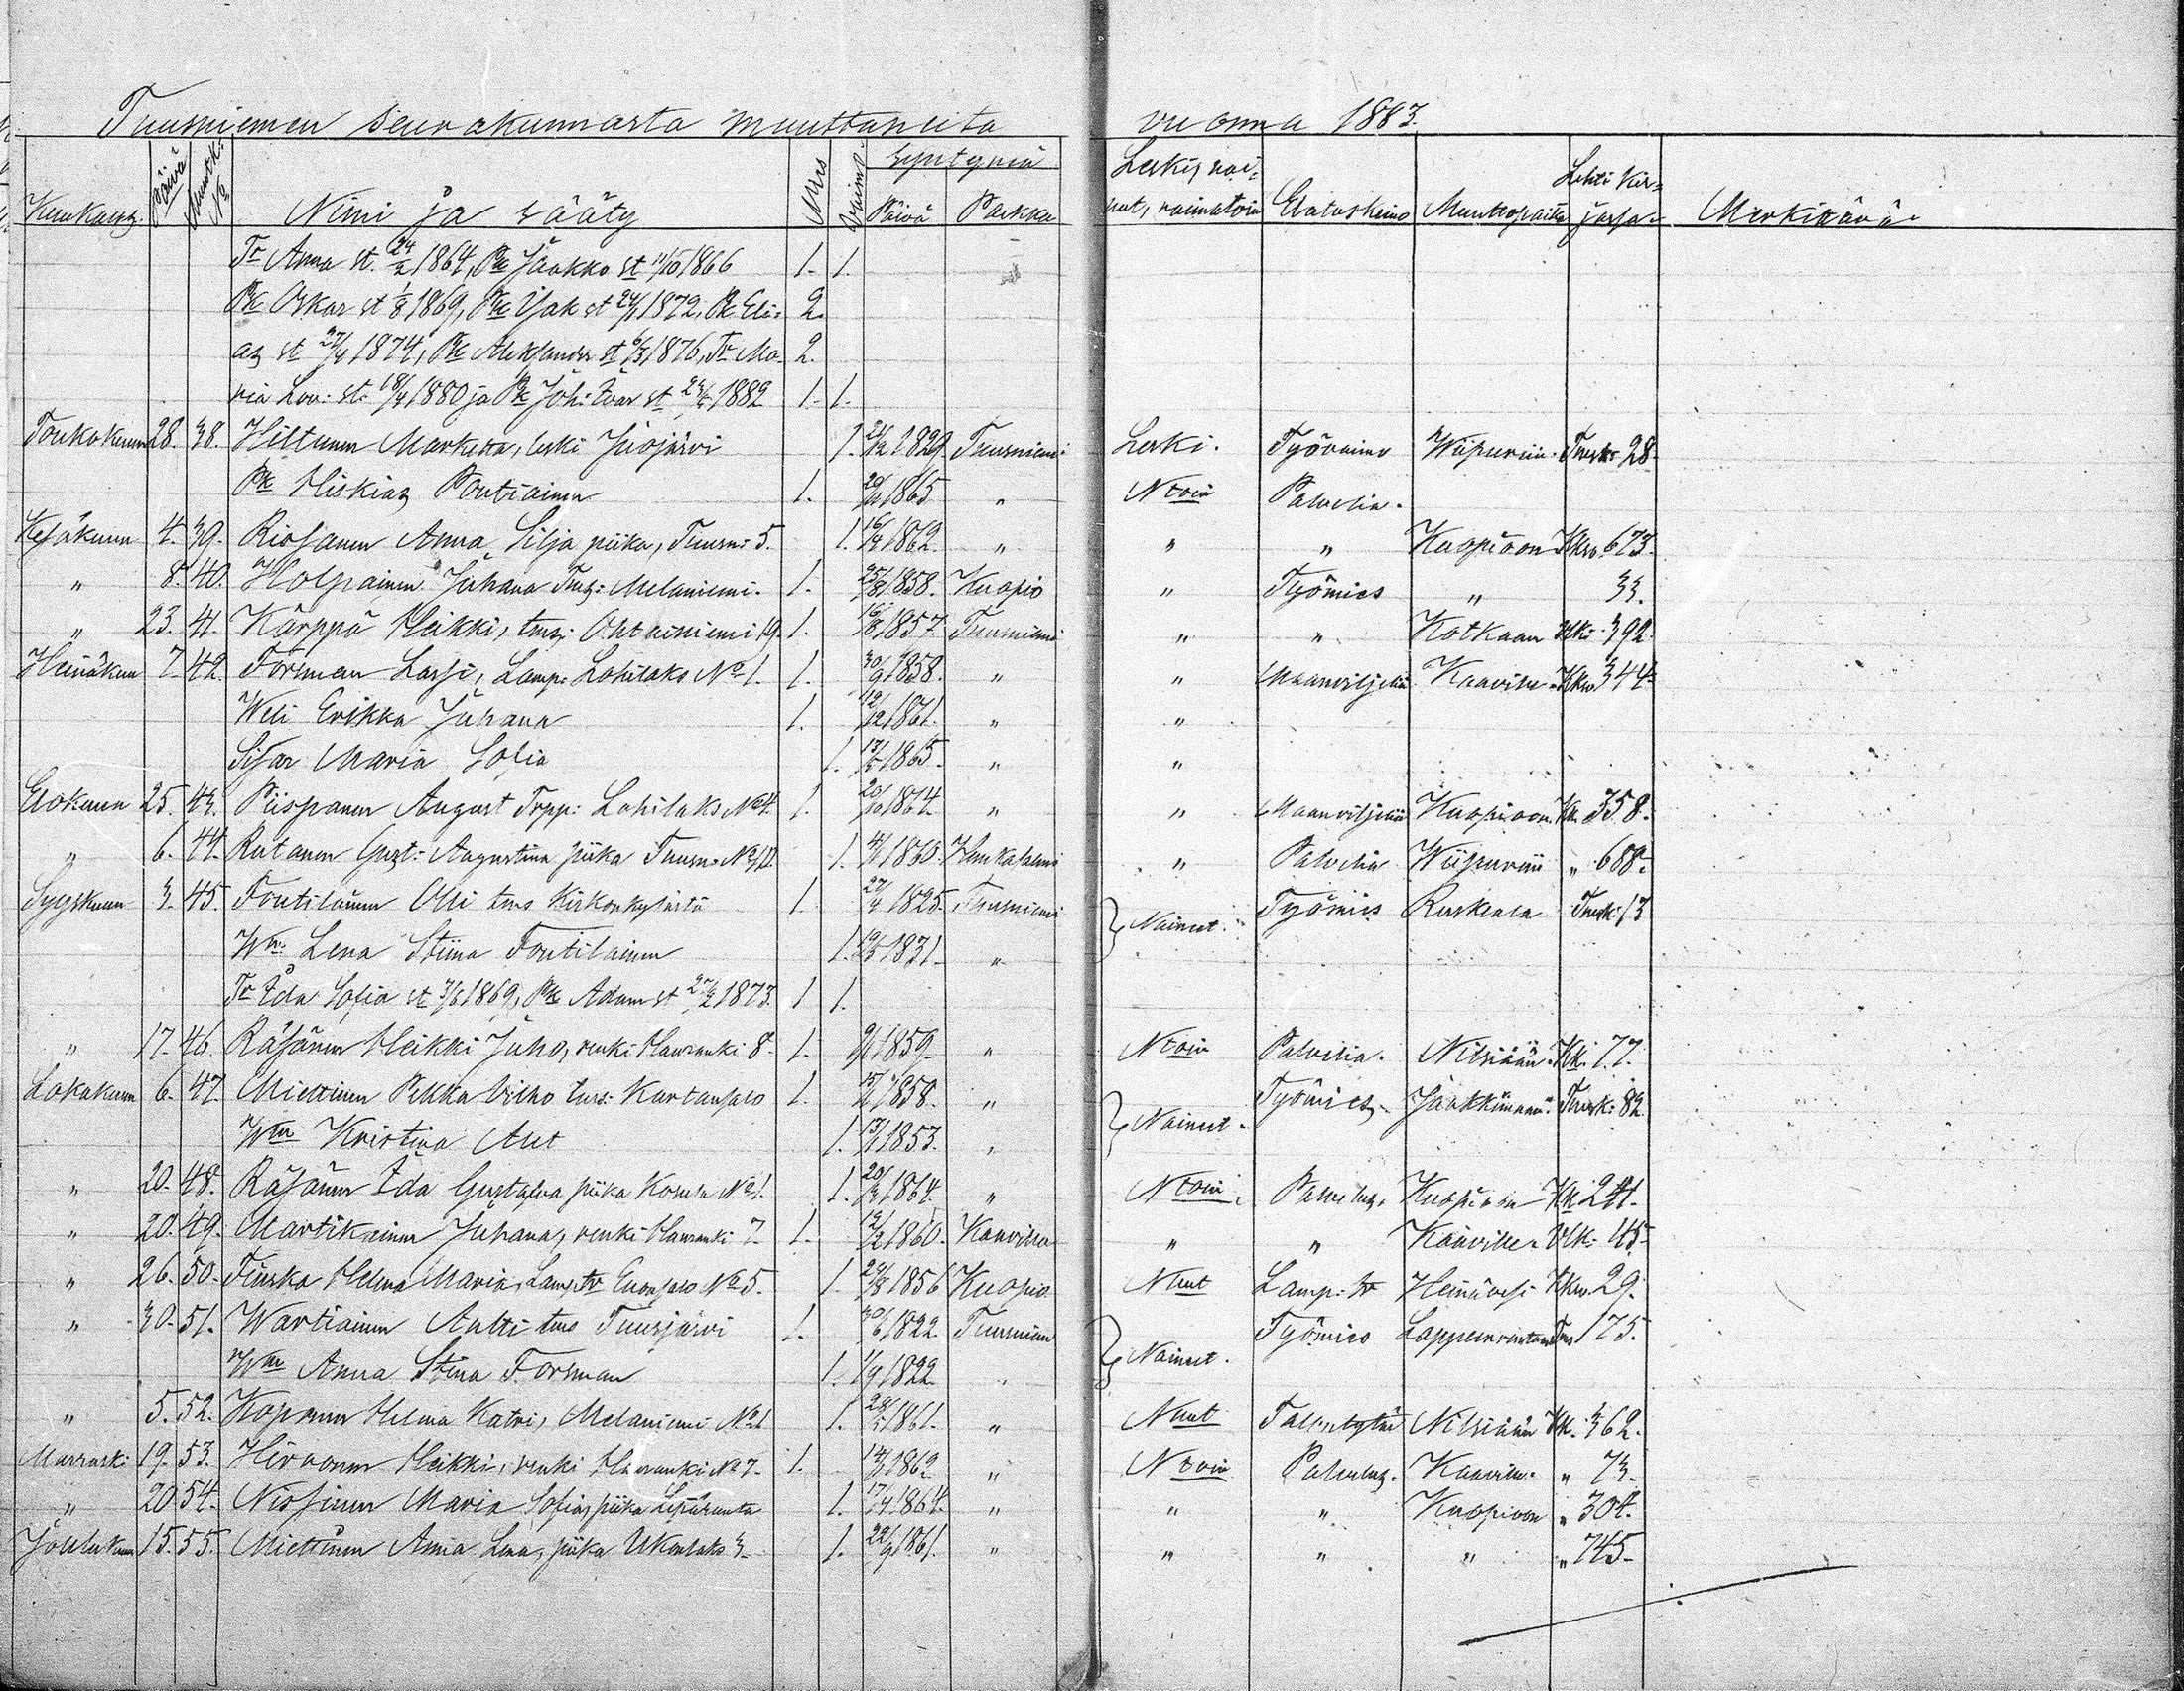 Tuusniemen seurakunnasta muuttaneita vuonna 1883.
Kuukausi. Päivä Muuttok: No Nimi ja sääty Mies Vaimo Syntynyt Päivä Paikka Leski, nai- nut, naimatoin Elatuskeino Muuttopaikka Lehti kir- jassa. Merkittävä
Tr Anna st. 24/2 1864, Pk Jaakko st 11/10 1866 1. 1.
Pk Oskar st 1/8 1869, Pk Isak st 24/1 1872, Pk Eli- 2.
as st 27/4 1874, Pk Aleksander st 6/3 1876, Tr Ma- 2.
ria Lov: st. 18/4 1880 ja Pk Joh: Ivar st 1882 1. 1.
Toukokuun 28. 38. Hiltunen Marketta, leski Juojärvi 1. 1829. Tuusniemi Leski. Työvaimo Wiipuriin. 28.
Pk Hiskias Pontiainen 1. 1865 " Ntoin Palvelia.
Kesäkuun 4. 39. Riosanen Anna Silja piika, Tuusni 5. 1. 1862. " " " Kuopioon Kkv. 673.
" 8. 40. Holpainen Juhana Melaniemi. 1. 25/8 1858. Kuopio " Työmies " 33.
" 23. 41. Kärppä Heikki, tms: Ohtaniemi 19. 1. 16/8 1857. Tuusniemi " " Kotkaan 392.
Heinäkuu 7. 42. Forsman Lassi, Lamp: Lohilaks No 1. 1. 30/9 1858. " " Maanviljeliä Kaaville Kkv 344.
Weli Erikka Juhana 1. 12/12 1861. " "
Sisar Maria Sofia 1. 1865. " "
Elokuun 25. 43. Piispanen August Trpp: Lohilaks No 4. 1. 20/10 1874. " " Maanviljeliä Kuopioon. Kk. 358.
" 6. 44. Rutanen Gust: Augustina piika Tuusn: No 12. 1. 1860. Hankasalmi " Palvelia Wiipuriin " 688.
Syyskuun 3. 45. Tontilainen Olli tms Kirkonkylästä 1. 27/4 1825. Tuusniemi } Naineet. Työmies Ruskeala 13
Wm: Lena Stiina Tontilainen 1. 1831. "
Tr Ida Sofia st 7/6 1869, Pk Adam st 27/2 1873. 1 1.
" 17. 46. Räsänen Heikki Juho, renki Hawanki 8. 1. 1859. " Ntoin Palvelia. Nilsiään. Kk. 77.
Lokakuun 6. 47. Miettinen Pekka Vilho tms: Kartansalo 1. 1858. " } Naineet. Työmies. Jaakkimaan. 82.
Wm Kristina Aut 1. 13/1 1853. "
" 20. 48. Räsänen Ida Gustafva piika Kosula No 1. 1. 1864. " Ntoin. Palvelus. Kuopioon Kk 241.
" 20. 49. Martikainen Juhana, renki Hawanki 7. 1. 12/2 1860. Kaavilla " " Kaaville. Ulk: 45.
" 26. 50. Tiirska Helena Maria, Lamp: tr Enonsalo No 5. 1. 1856 Kuopio Nnut Lamp: tr Heinävesi Kkv 29.
" 30. 51. Wartiainen Antti tms Tuusjärvi 1. 30/6 1822. Tuusniemi } Naineet. Työmies Lappeenrantaan 175.
Wm Anna Stiina Forsman 1. 1/9 1822.
" 5. 52. Koponen Helena Katri, Melaniemi No 1 1. 1861. " Nnut Nilsiään Kk. 362.
Marrask: 19. 53. Hirvonen Heikki, renki Hawanki No 7. 1. 1862. " Ntoin Palvelus. Kaaville. " 73.
" 20 54. Niosinen Maria Sofia, piika Lepäranta 1. 1864. " " " Kuopioon " 304.
Joulukuun 15. 55. Miettinen Anna Lena, piika Ukonlaks 3. 1. 22/9 1861. " " " " " 745.